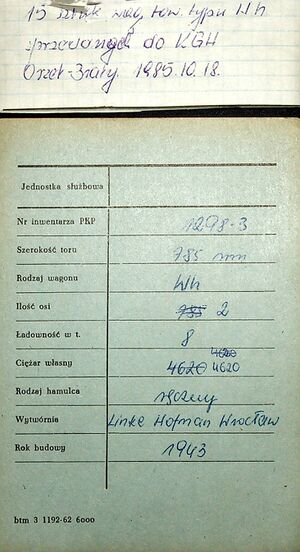 15 sztuk wag. tow. typu Wh
sprzedanych do KGH
Orzeł-Biały. 1985.10.18.
Jednostka służbowa
Nr inwentarza PKP 1298-3
Szerokość toru 785 mm
Rodzaj wagonu Wh
Ilość osi 785 2
Ładowność w t. 8
4620
Ciężar własny 4620 4620
Rodzaj hamulca ręczny
Wytwórnia Linke Hofman Wrocław
Rok budowy 1943
btm 3 1192-62 6000